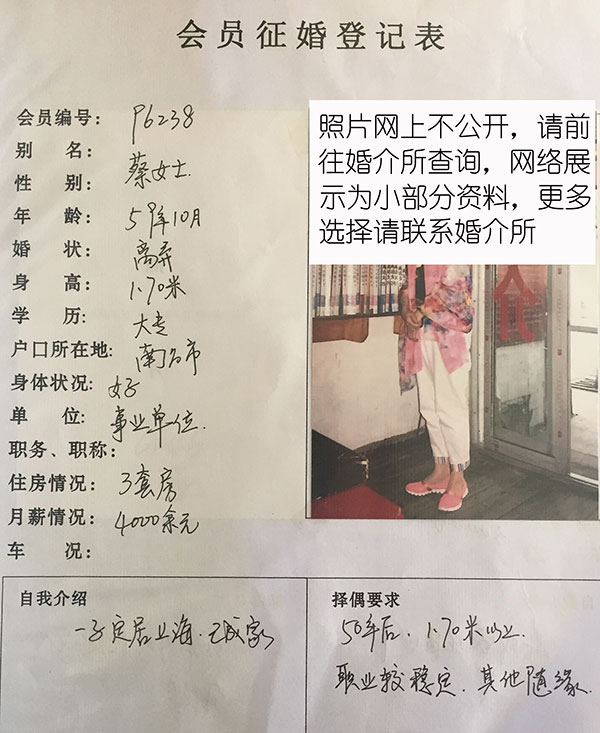 会员征婚登记表
会员编号: P6238
别 名: 蔡女士
性 别:
年 龄: 59年10月
婚 状: 离异
身 高: 1.70米
学 历: 大专
户口所在地: 南昌市
身体状况: 好
单 位: 事业单位.
职务、职称:
住房情况: 3套房
月薪情况: 4000余元
车 况:
照片网上不公开，请前
往婚介所查询，网络展
示为小部分资料，更多
选择请联系婚介所
自我介绍
一子定居上海.已成家
择偶要求
50年后. 1.70米以上.
职业较稳定. 其他随缘.